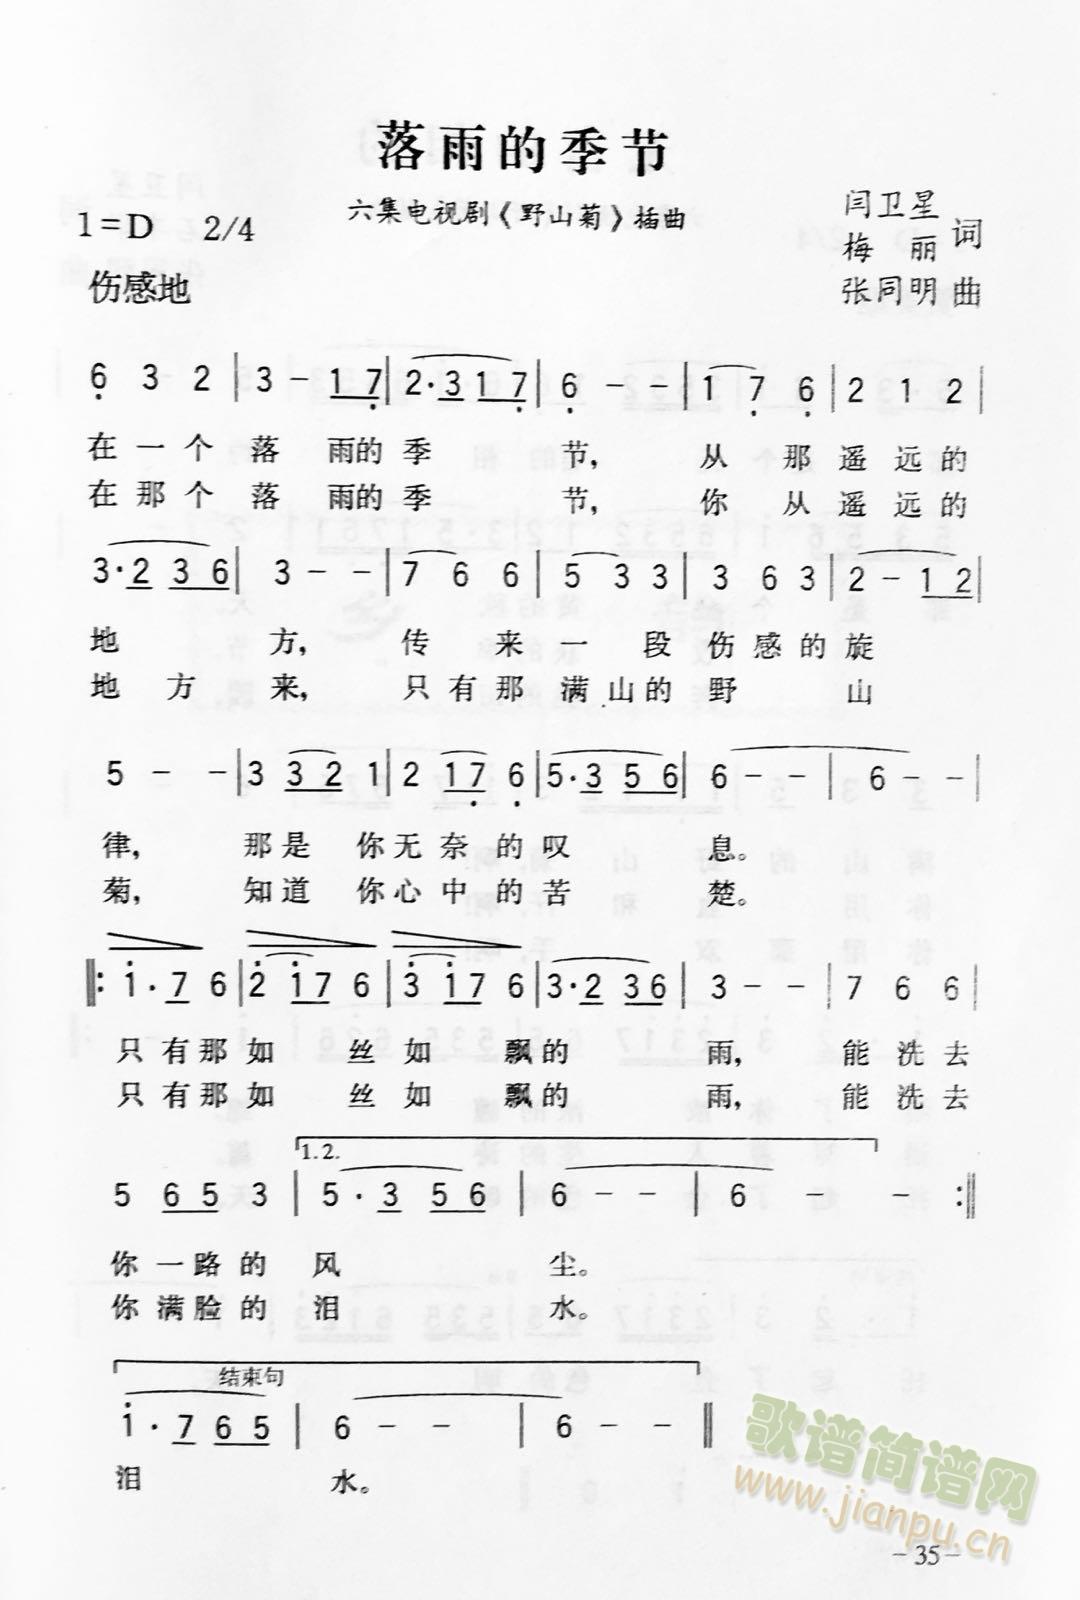 落雨的季节
六集电视剧《野山菊》插曲
1=D 2/4
闫卫星
梅 丽 词
张同明 曲
伤感地
6 3 2 | 3 - 1 7 | 2·3 1 7 | 6 - - | 1 7 6 | 2 1 2 |
在一个落 雨的季 节, 从那遥远的
在那个落 雨的季 节, 你从遥远的
3·2 3 6 | 3 - - | 7 6 6 | 5 3 3 | 3 6 3 | 2 - 1 2 |
地 方, 传来一段伤感的旋
地方来, 只有那满山的野 山
5 - - | 3 3 2 1 | 2 1 7 6 | 5·3 5 6 | 6 - - | 6 - - |
律, 那是 你无奈的叹 息。
菊, 知道 你心中的苦 楚。
‖: i·7 6 | 2 i 7 6 | 3 i 7 6 | 3·2 3 6 | 3 - - | 7 6 6 |
只有那如 丝如 飘的 雨, 能洗去
只有那如 丝如 飘的 雨, 能洗去
1.2.
5 6 5 3 | 5·3 5 6 | 6 - - | 6 - - :‖
你一路的 风 尘。
你满脸的 泪 水。
结束句
i·7 6 5 | 6 - - | 6 - - ‖
泪 水。
歌谱简谱网
www.jianpu.cn
-35-